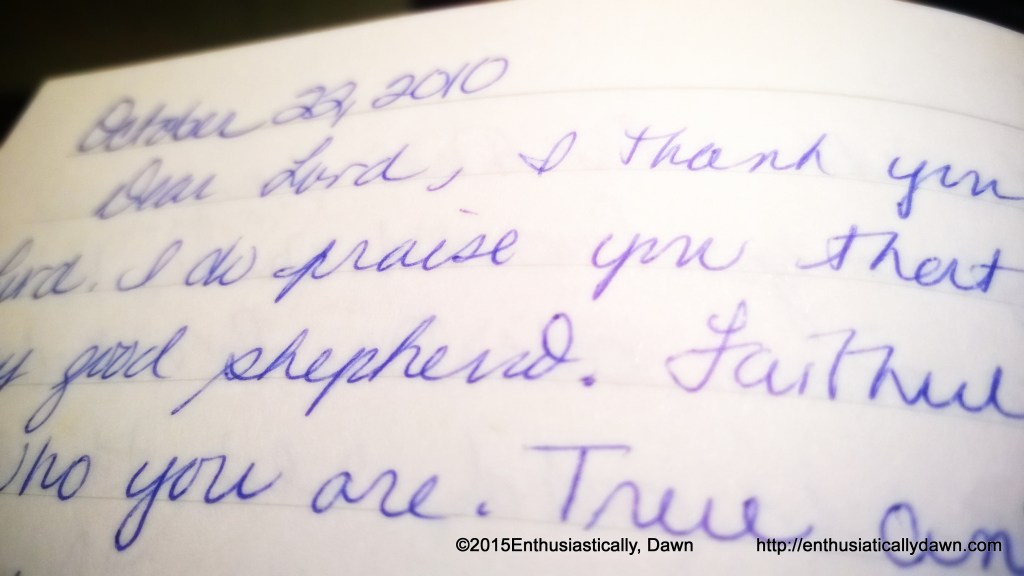 October 22, 2010
Dear Lord, I thank you
Lord. I do praise you that
y good shepherd. Faithful
who you are. True an
©2015Enthusiastically, Dawn http://enthusiaticallydawn.com